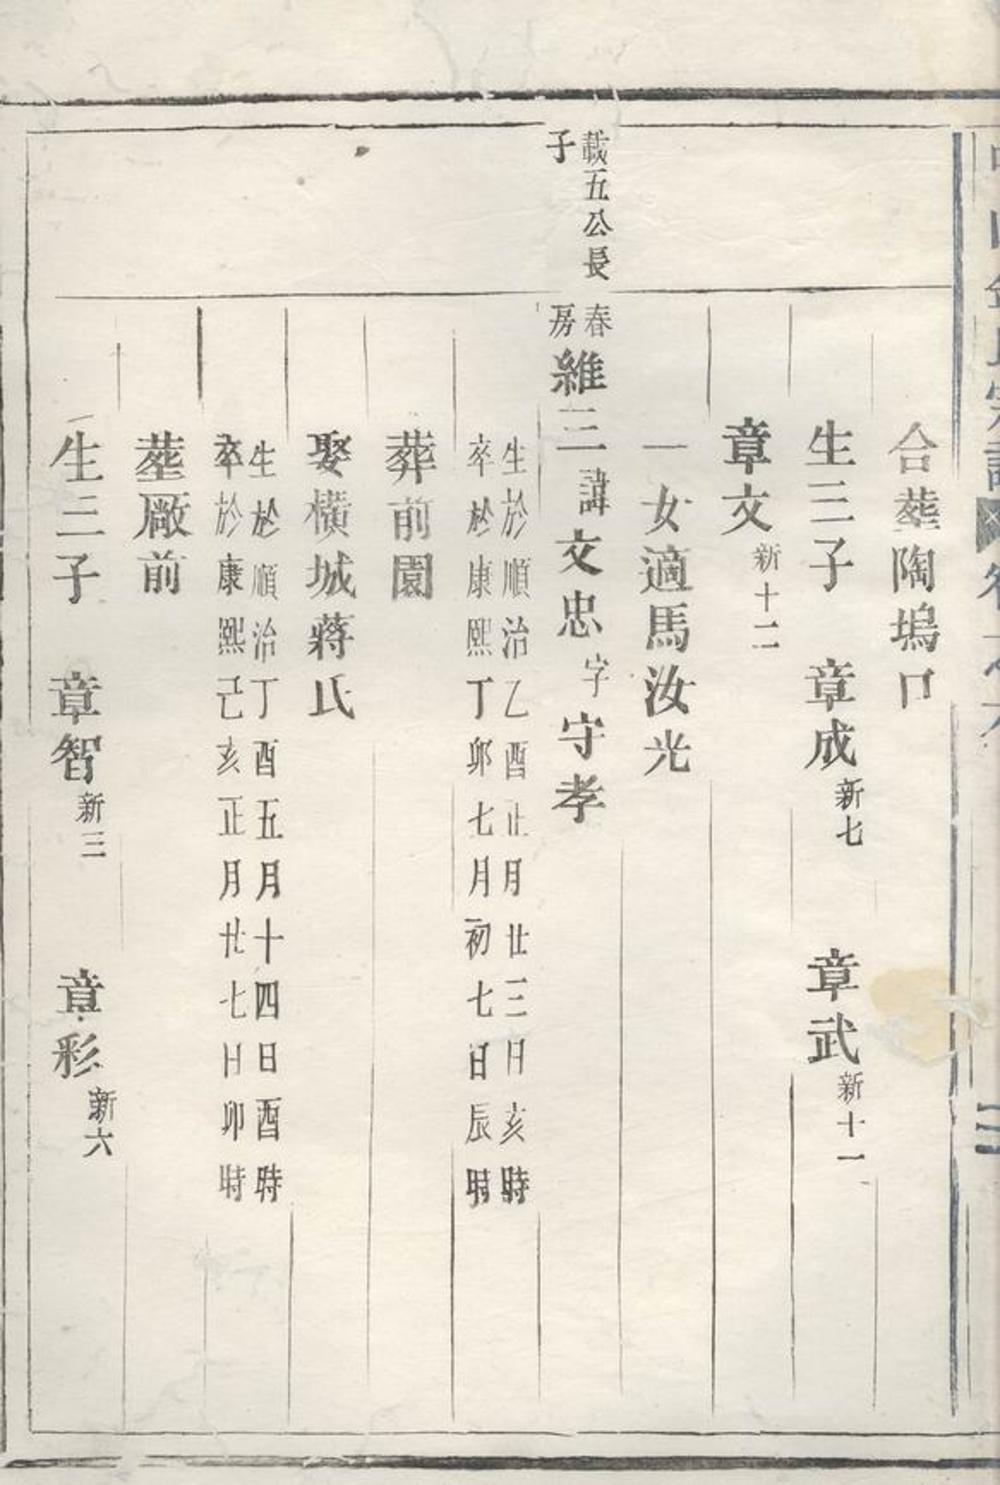 合葬陶塢口
生三子 章成新七 章武新十一
章文新十二
一女適馬汝光
載五公長
子
春房維三諱文忠字守孝
生於順治乙酉正月廿三日亥時
卒於康熙丁卯七月初七日辰時
葬前園
娶橫城蔣氏
生於順治丁酉五月十四日酉時
卒於康熙己亥正月廿七日卯時
塟廠前
生三子 章智新三 章彩新六